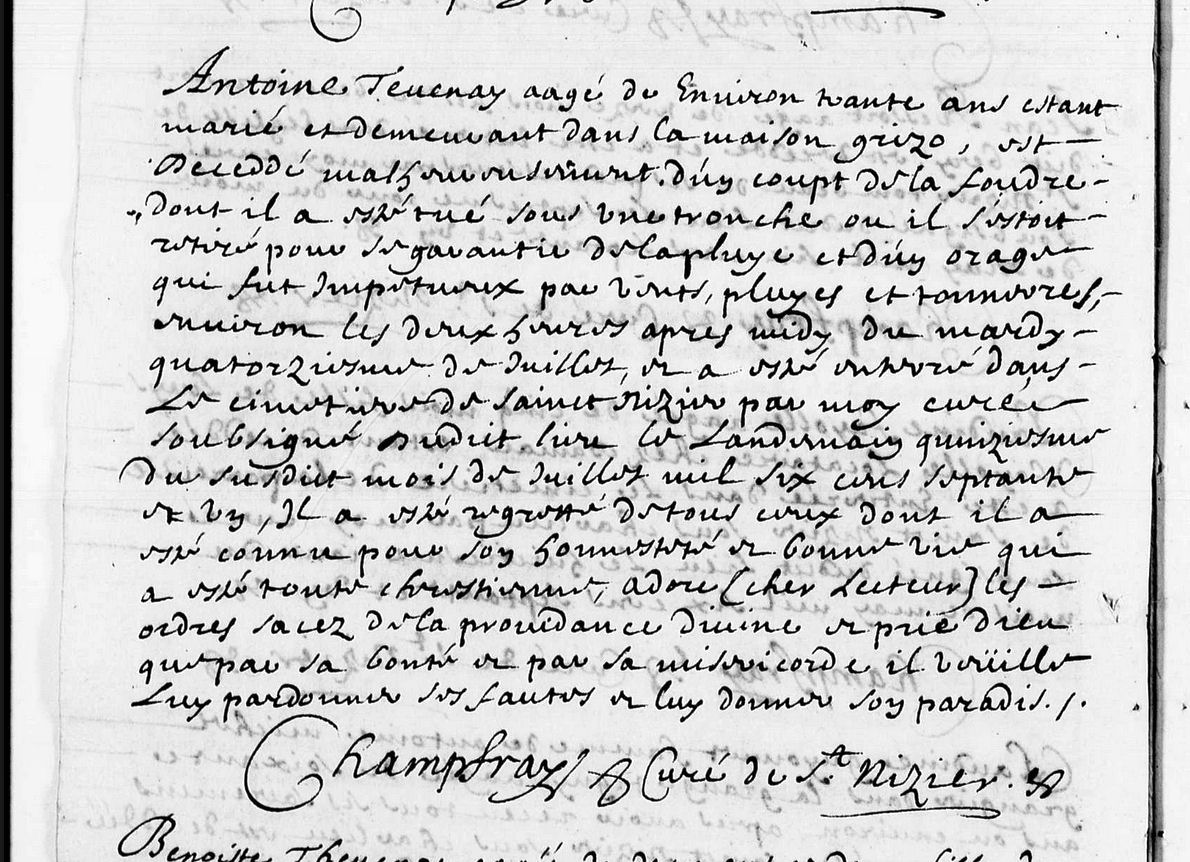 Antoine Tevenay aagé de Environ trante ans estant
marié et demeurant dans la maison grizo, est
Deceddé malheureusement. d'un coupt de la foudre
dont il a esté tué sous une tronche ou il s'estoit
retiré pour se garantir de la pluye et d'un orage
qui fut Impetueux par vents, pluyes et tonnerres,
environ les deux heures apres midy du mardy
quatorziesme de Juillet, et a esté enterré dans
Le cimetiere de sainct Nizier par moy curé
soubsigné Dudict lieu le Landemain quinziesme
du susdict mois de Juillet mil six cens septante
et un, Il a esté regretté de tous ceux dont il a
esté connu pour son honnesteté et bonne vie qui
a esté toute chrestienne, adore [cher Lecteur] les
ordres sacez de la providance divine et prie Dieu
que par sa bonté et par sa misericorde il veüille
Luy pardonner ses fautes et luy donner son paradis./.
Champfray Curé de St. Nizier.
Benoiste